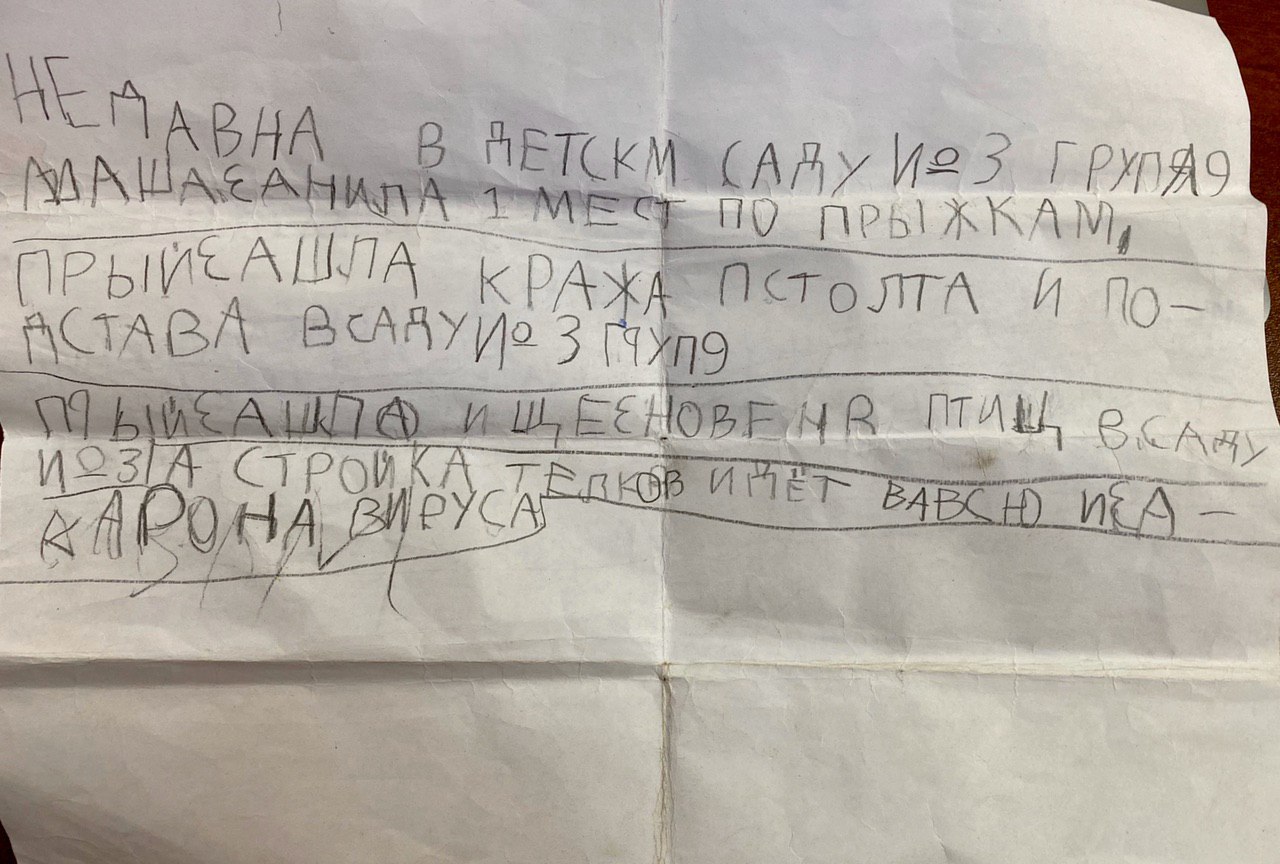 НЕДАВНА В ДЕТСКМ САДУ И№ 3 ГРУПЯ9
МАШАЗАНИЛА 1 МЕСТ ПО ПРЫЖКАМ,
ПРЫЙЗАШЛА КРАЖА ПСТОЛТА И ПО-
ДСТАВА ВСАДУ № 3 ГРУП9
ПРЫЙЗАШЛА ИЩЕЗНОВЕНЯ ПТИЩ ВСАДУ
№3 А СТРОЙКА ТЕЛКОВ ИДЁТ ВАВСЮ ИЗА-
КАРОНА ВИРУСА